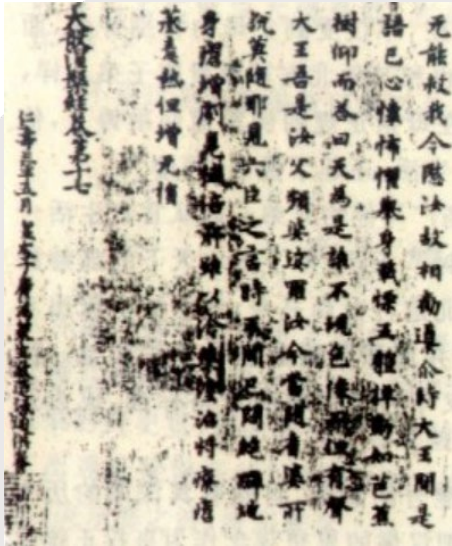 无能救我今愍汝故相勸導尒時大王聞是
語已心懷怖懼舉身戰慄五體掉動如芭蕉
樹仰而答曰天為是誰不現色像而但有聲
大王吾是汝父頻婆娑羅汝今當隨耆婆所
說莫隨耶見六臣之言時王聞已悶絕躃地
身瘡增劇臭穢倍前雖以冷藥塗治將療瘡
蒸毒熱但增无損
大般涅槃經卷第十七
仁壽三年五月 皇太子廣為